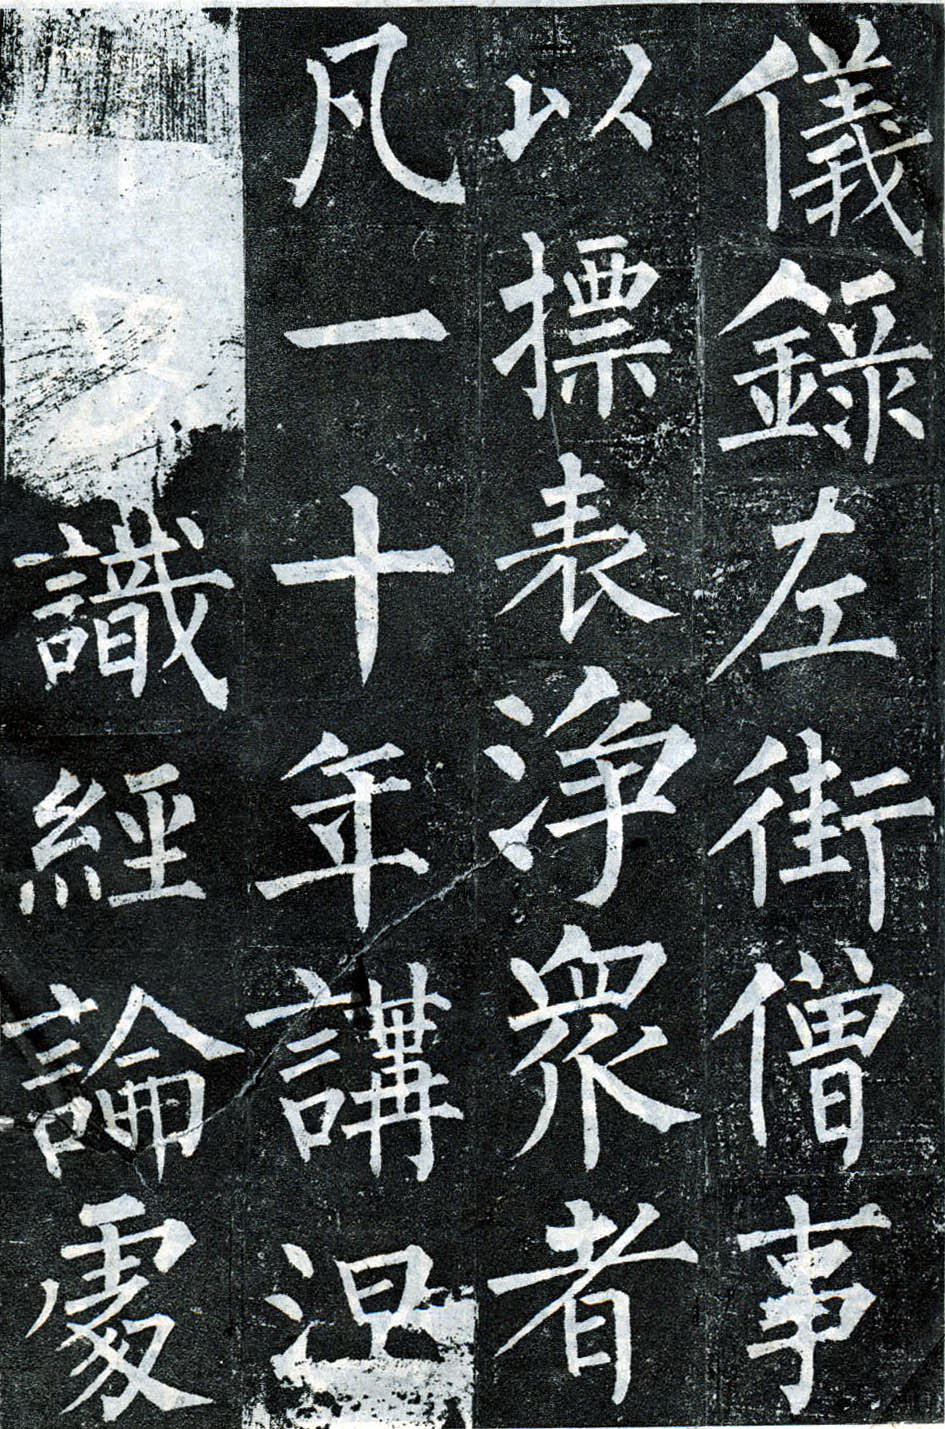 儀錄左街僧事
以摽表浄眾者
凡一十年講涅
識經論處